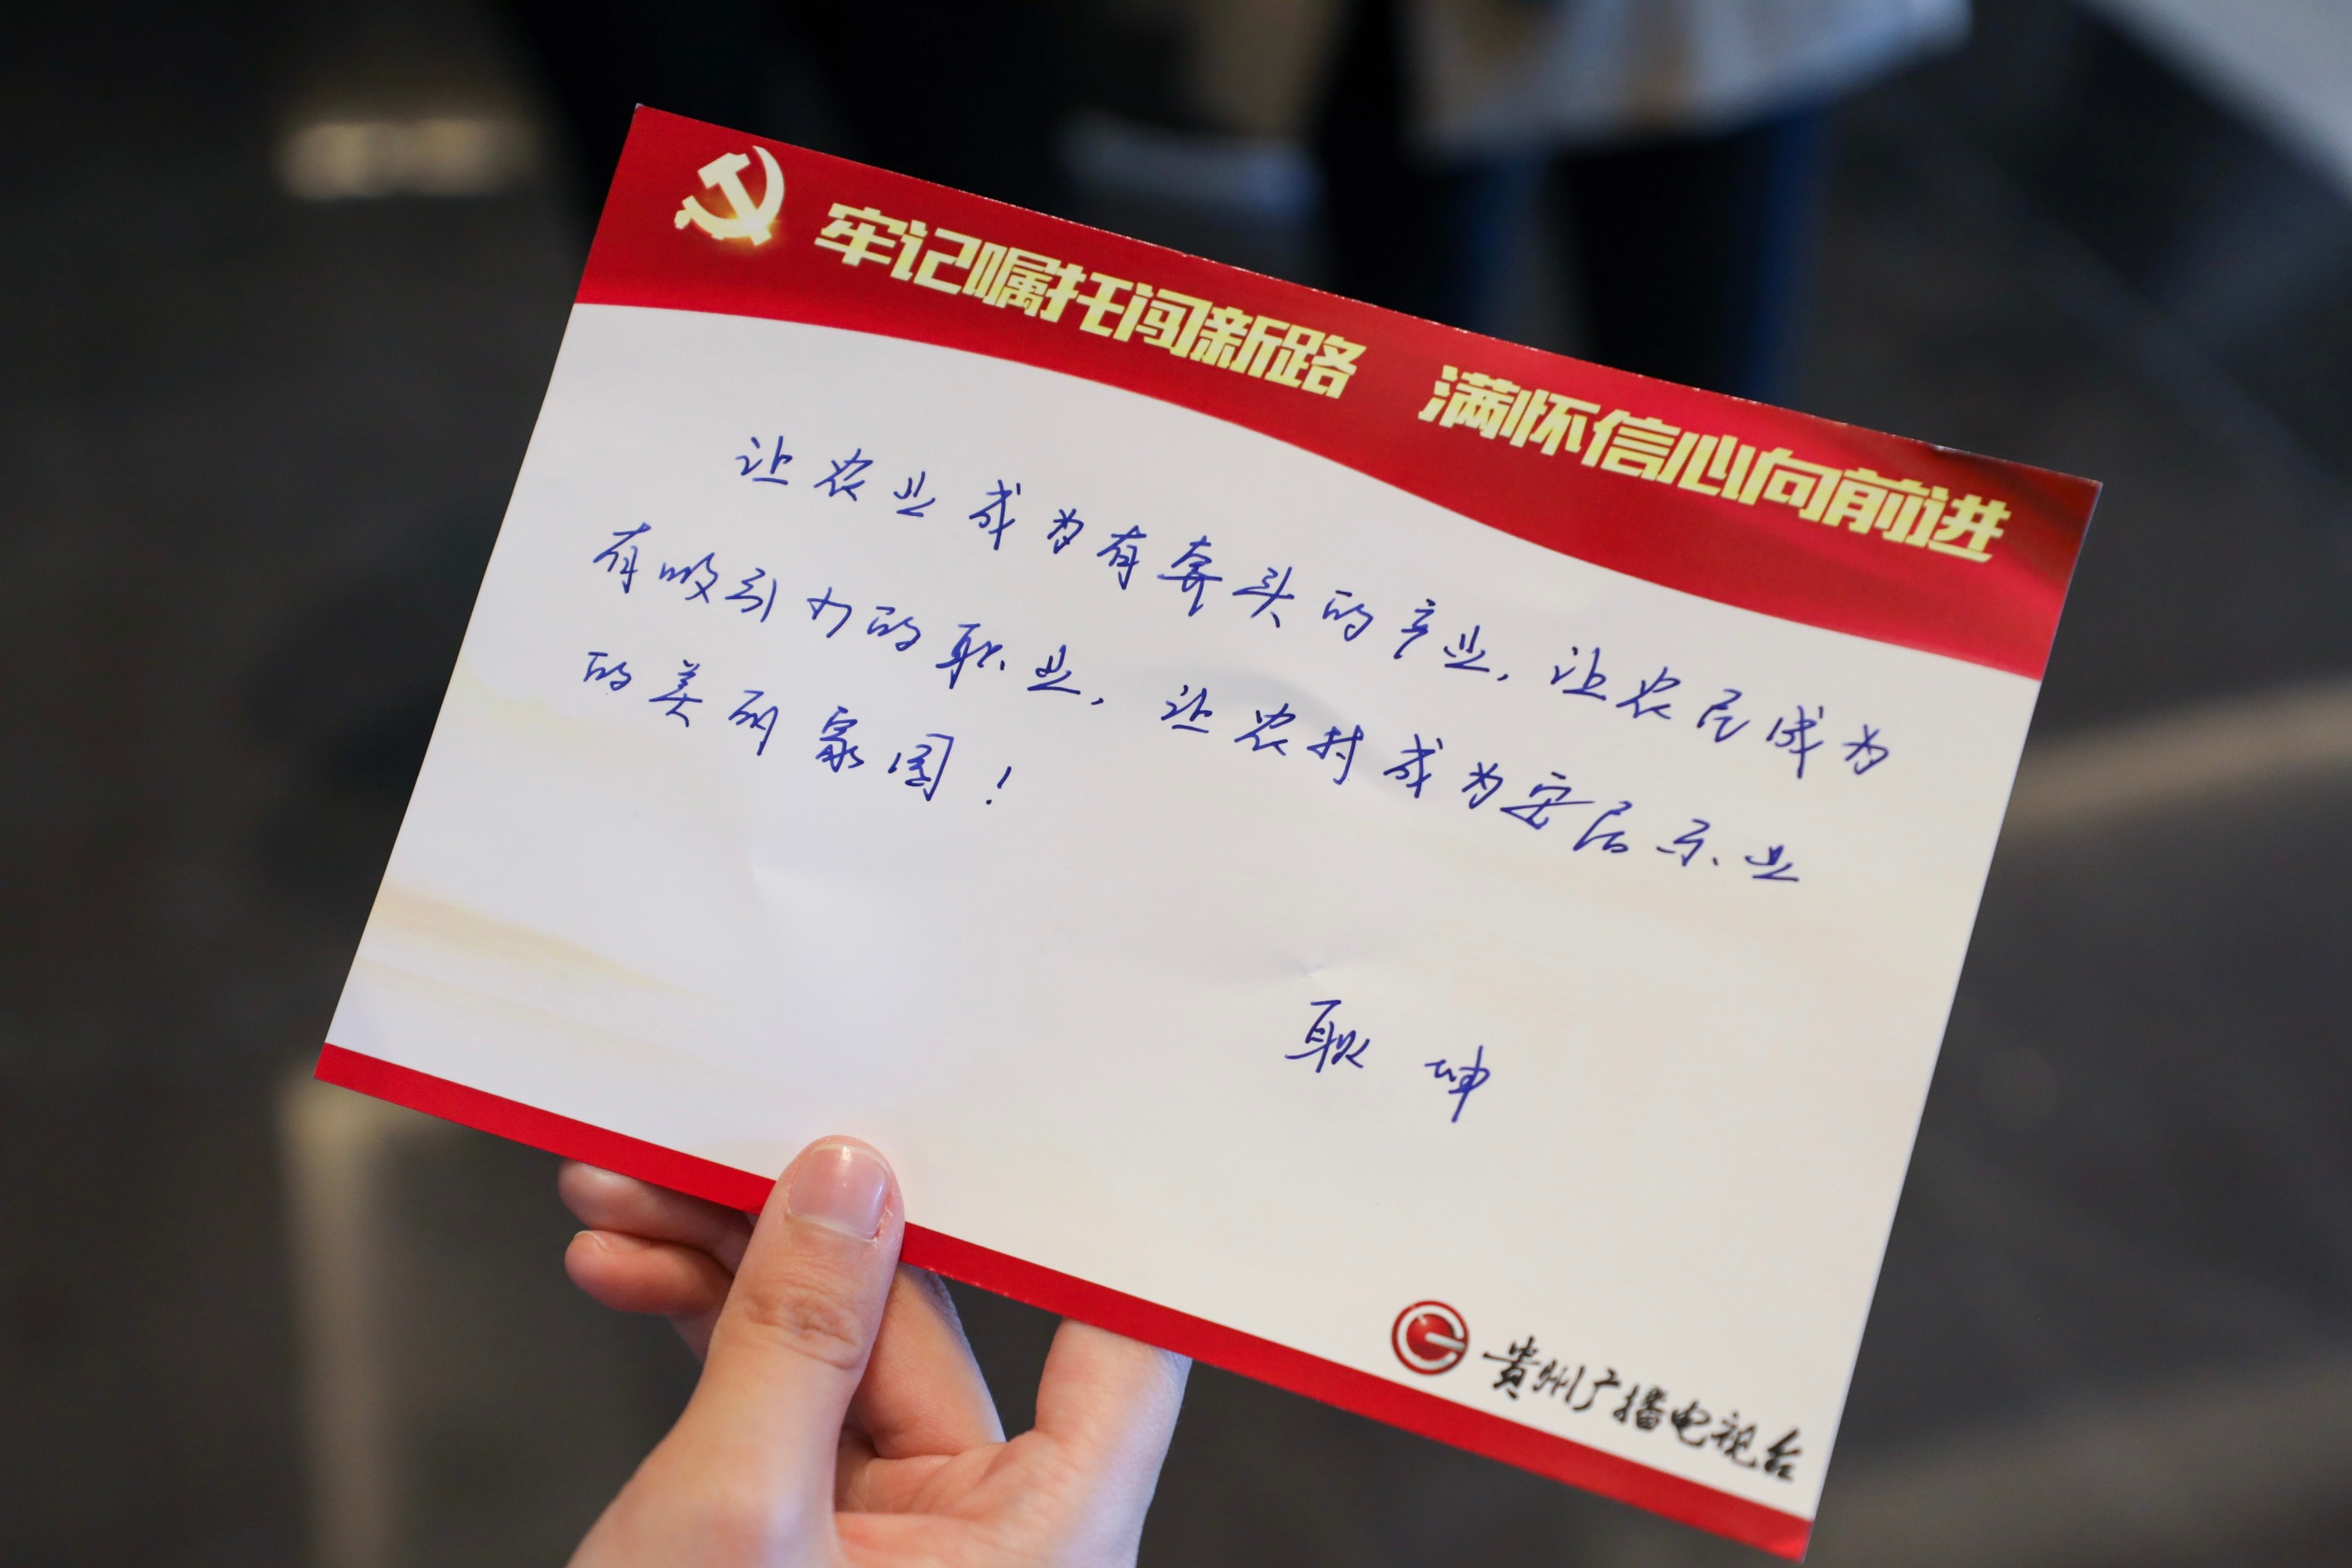 牢记嘱托闯新路 满怀信心向前进
让农业成为有奔头的产业,让农民成为
有吸引力的职业,让农村成为安居乐业
的美丽家园!
耿坤
贵州广播电视台